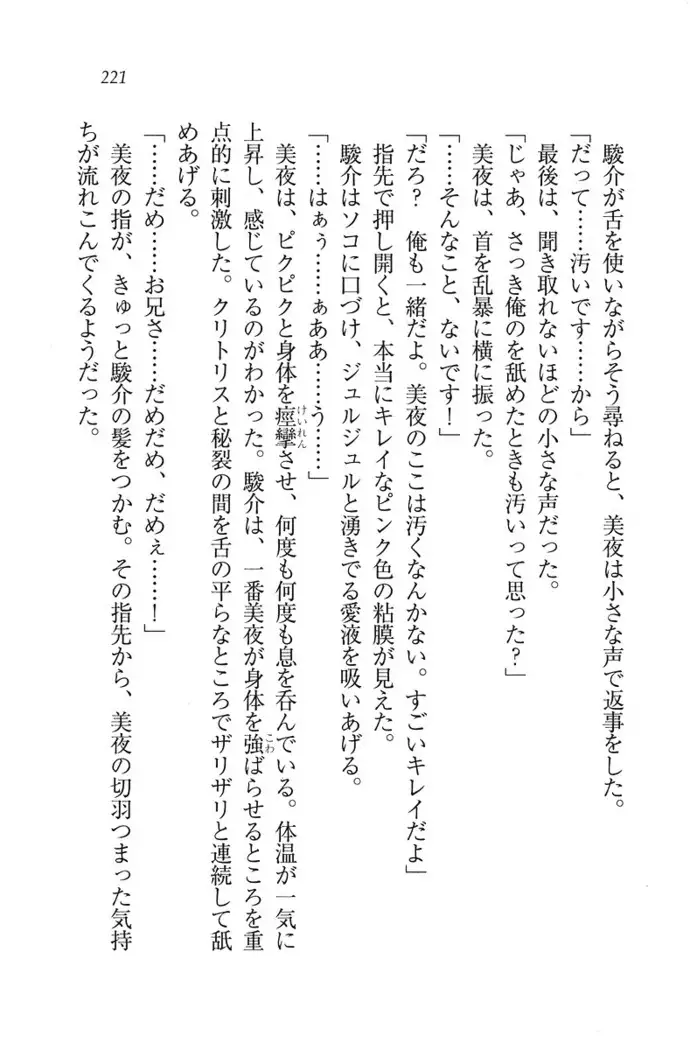 221
駿介が舌を使いながらそう尋ねると、美夜は小さな声で返事をした。
「だって……汚いです……から」
最後は、聞き取れないほどの小さな声だった。
「じゃあ、さっき俺のを舐めたときも汚いって思った?」
美夜は、首を乱暴に横に振った。
「……そんなこと、ないです!」
「だろ? 俺も一緒だよ。美夜のここは汚くなんかない。すごいキレイだよ」
指先で押し開くと、本当にキレイなピンク色の粘膜が見えた。
駿介はソコに口づけ、ジュルジュルと湧きでる愛液を吸いあげる。
「……はぁぅ……ぁああ……う……」
美夜は、ピクピクと身体を痙攣させ、何度も何度も息を呑んでいる。体温が一気に
上昇し、感じているのがわかった。駿介は、一番美夜が身体を強ばらせるところを重
点的に刺激した。クリトリスと秘裂の間を舌の平らなところでザリザリと連続して舐
めあげる。
「……だめ……お兄さ……だめだめ、だめぇ……!」
美夜の指が、きゅっと駿介の髪をつかむ。その指先から、美夜の切羽つまった気持
ちが流れこんでくるようだった。